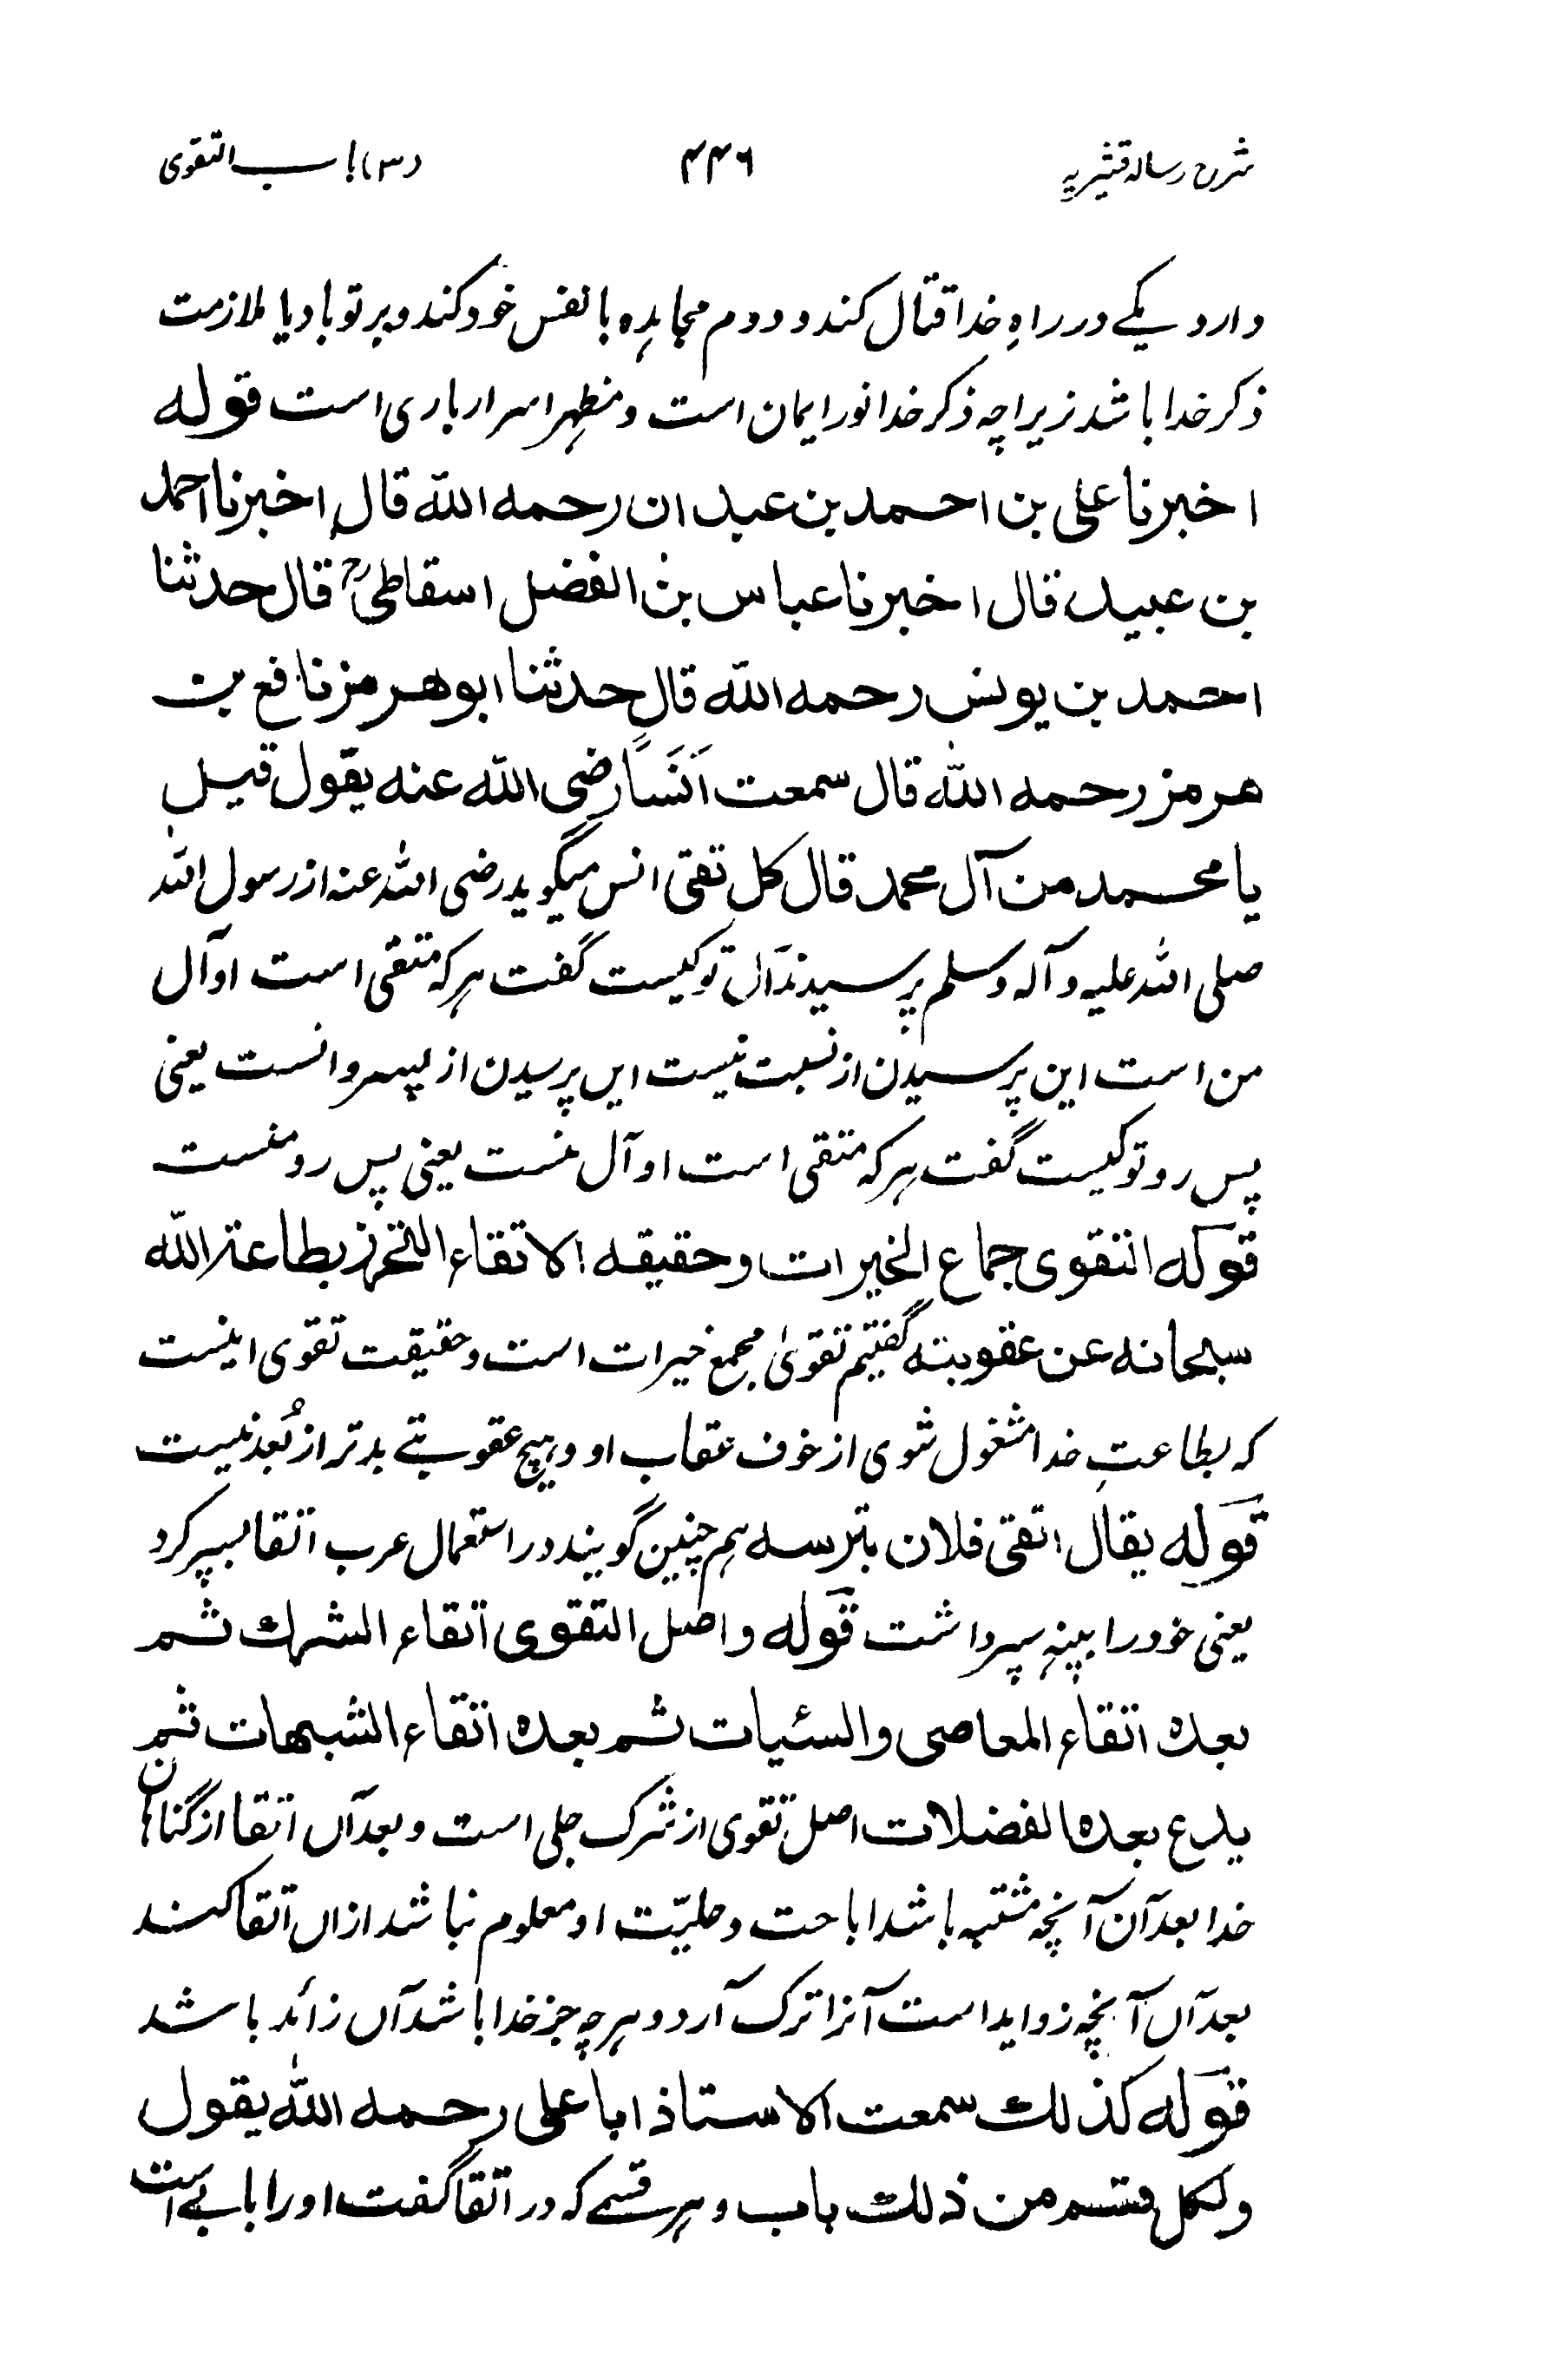 شرح رساله قشیریه ۴۴۶ (۳) باب التقوی
دارد یکے در راہِ خدا قتال کند و دوم مجاہدہ با نفس خود کند و بر تو بادیا ملازمت
ذکر خدا باشد زیراچہ ذکر خدا نور ایمان است و مظہر اسرار باری است قوله
اخبرنا علی بن احمد بن عبدان رحمه الله قال اخبرنا احمد
بن عبید قال اخبرنا عباس بن الفضل اسقاطیؒ قال حدثنا
احمد بن یونس رحمه الله قال حدثنا ابو هرمز نافع بن
هرمز رحمه الله قال سمعت اَنَسًا رضی الله عنه یقول قیل
یا محمد من آل محمد قال کل تقی انس میگوید رضی اللہ عنہ از رسول اللہ
صلی اللہ علیہ و آلہ وسلم پرسیدند آل تو کیست گفت ہر کہ متقی است او آل
من است این پرسیدن از نسبت نیست ایں پرسیدن از پسروانست یعنی
پس رو تو کیست گفت ہر کہ متقی است او آل منست یعنی پس رو منست
قوله التقوی جماع الخیرات وحقیقه الاتقاء التحرز بطاعة الله
سبحانه عن عقوبته گفتیم تقویٰ مجمع خیرات است و حقیقت تقوی اینست
کہ بطاعتِ خدا مشغول شوی از خوف عقاب او و ہیچ عقوبتے بدتر از بُعد نیست
قوله یقال اتقی فلان بترسه ہم چنین گویند در استعمال عرب اتقا بسپر کرد
یعنی خود را بپنہِ سپر داشت قوله واصل التقوی اتقاء الشرك ثم
بعده اتقاء المعاصی والسئیات ثم بعده اتقاء الشبهات ثم
یدع بعده الفضلات اصل تقوی از شرک جلی است و بعد آں اتقا از گناہان
خدا بعد آن آنچہ مشتبہ باشد اباحت و حلیّت او معلوم نباشد ازاں اتقا کند
بعد آں آنچہ زواید است آنرا ترک آرد و ہرچہ جز خدا باشد آں زائد باشد
قوله کذلك سمعت الاستاذ ابا علی رحمه الله یقول
ولکل قسم من ذلك باب و ہر قسمے کہ در اتقا گفت او را بابے است